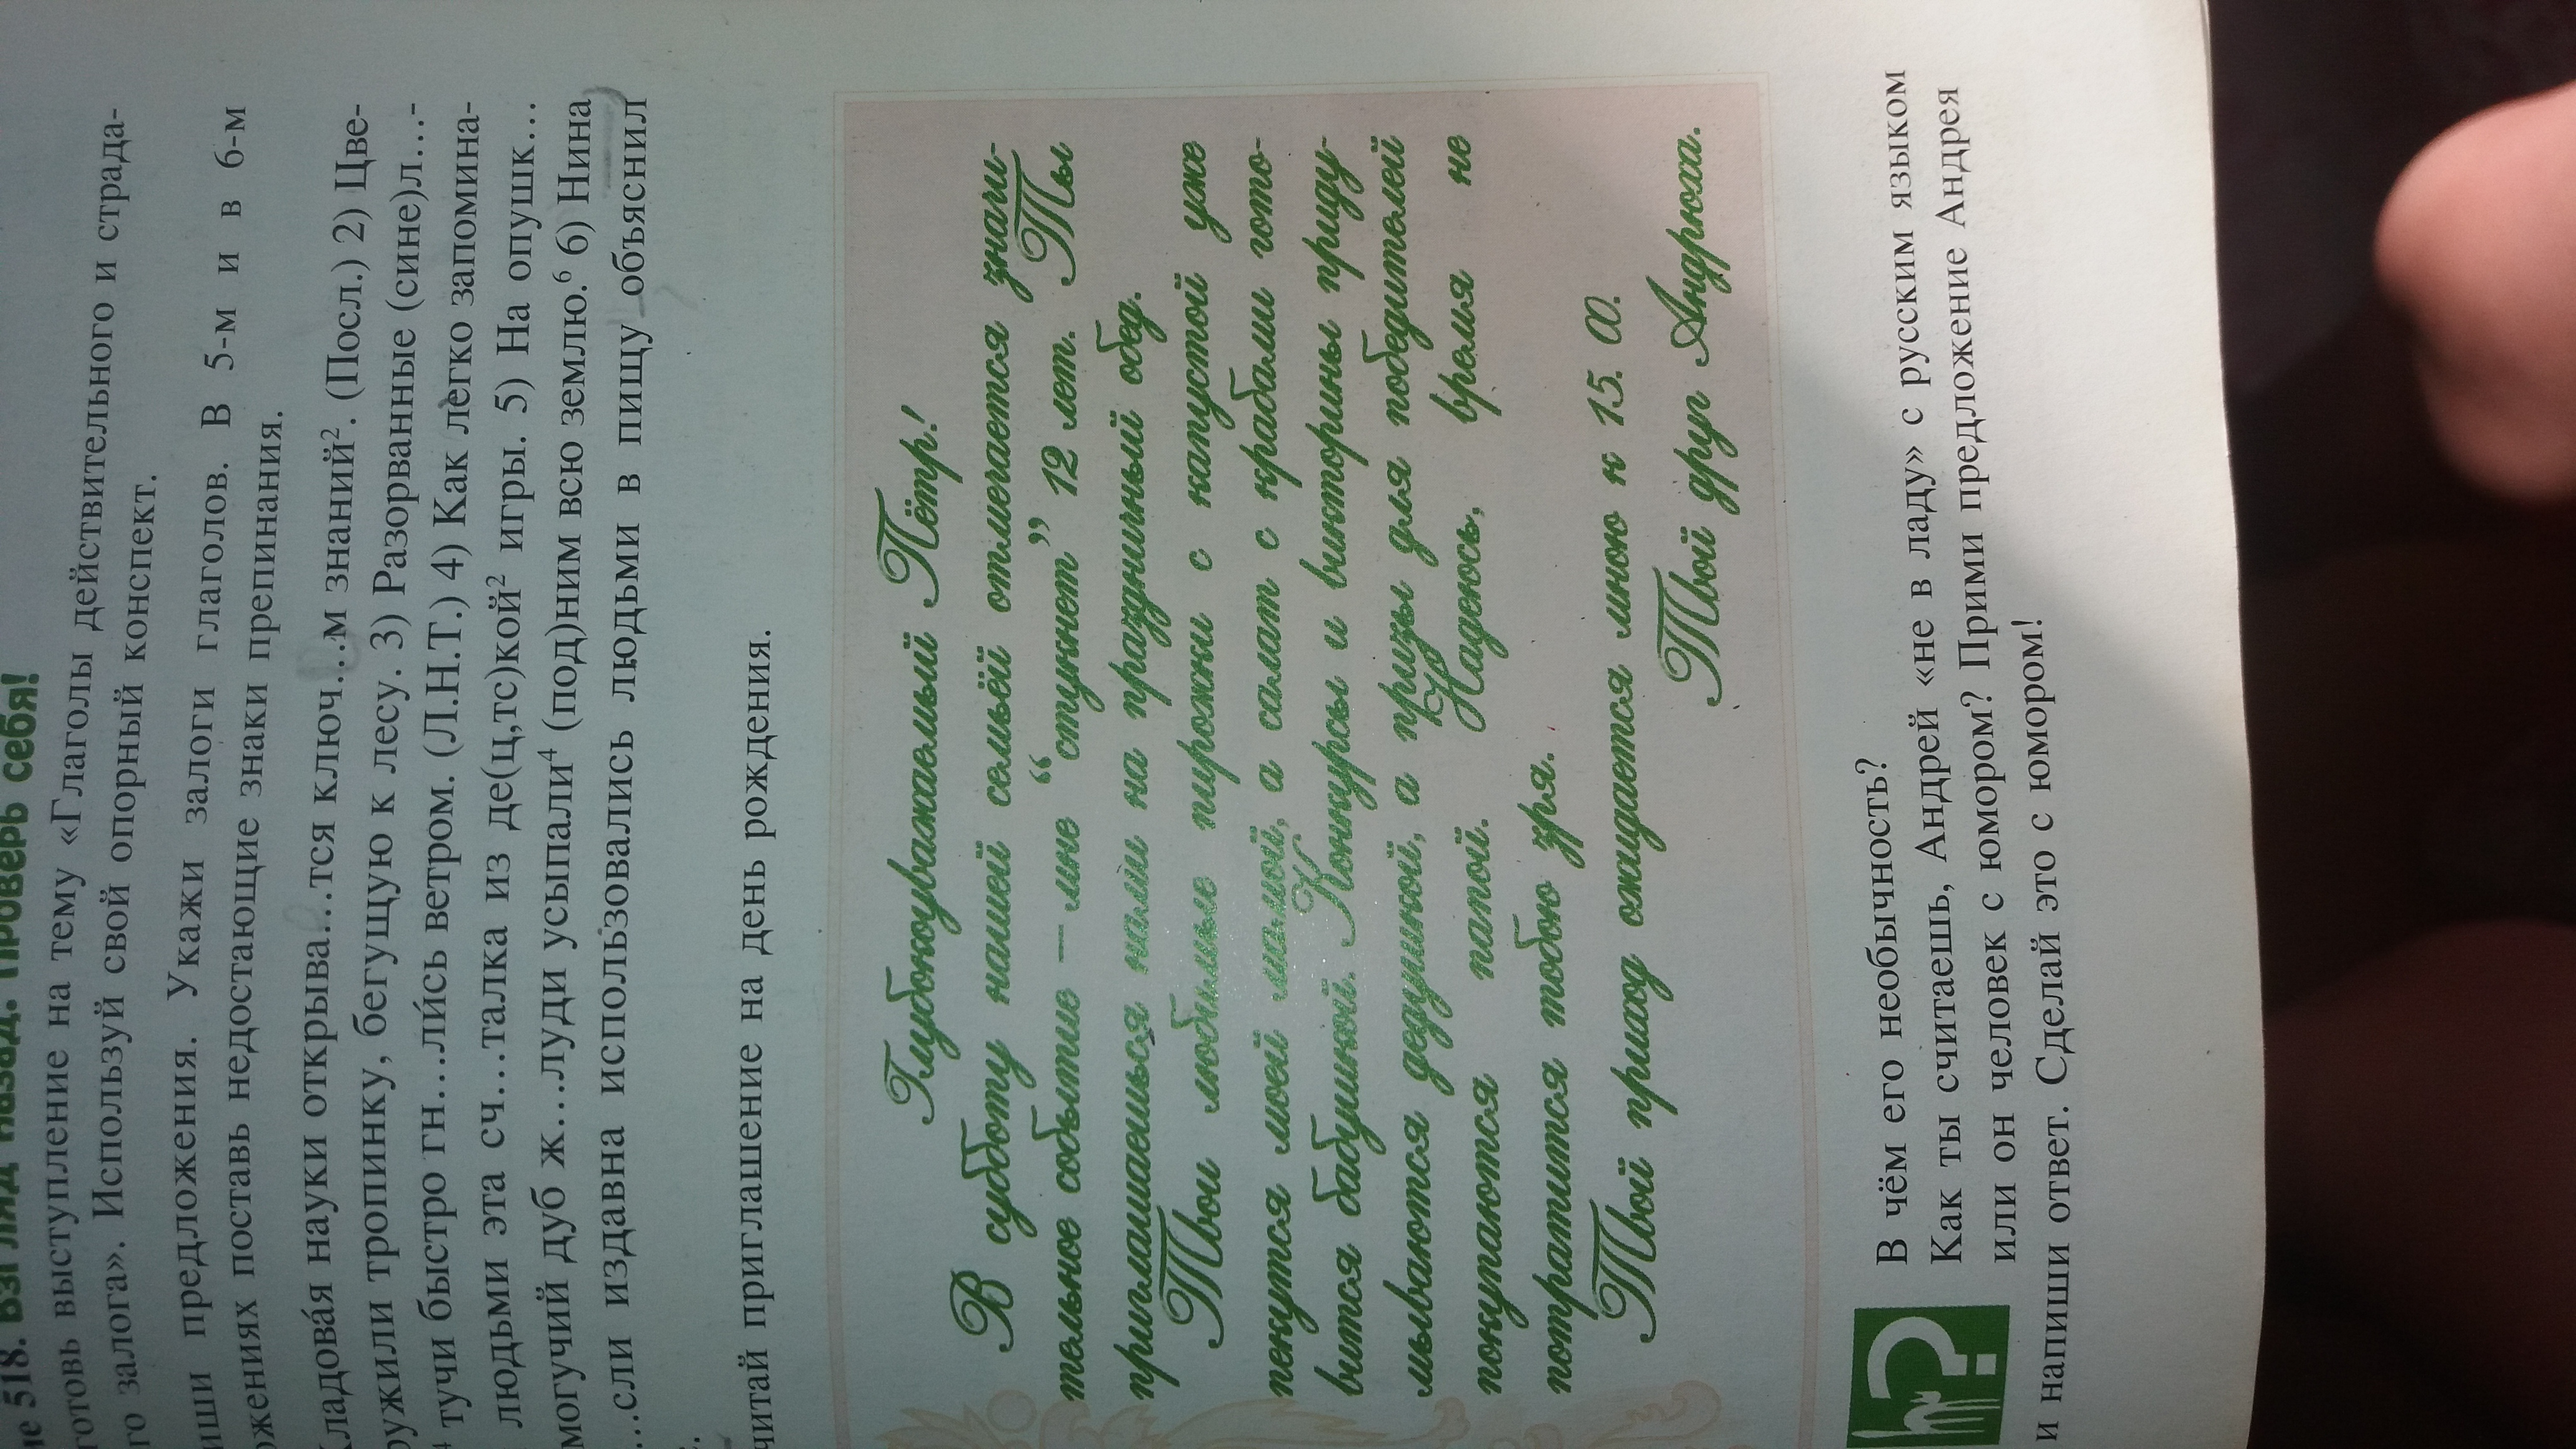 не 518. ВЗГЛЯД НАЗАД. ПРОВЕРЬ СЕБЯ!
готовь выступление на тему «Глаголы действительного и страда-
го залога». Используй свой опорный конспект.
иши предложения. Укажи залоги глаголов. В 5-м и в 6-м
ожениях поставь недостающие знаки препинания.
Кладова́я науки открыва...тся ключ...м знаний². (Посл.) 2) Цве-
ружили тропинку, бегущую к лесу. 3) Разорванные (сине)л...-
⁴ тучи быстро гн...ли́сь ветром. (Л.Н.Т.) 4) Как легко запомина-
людьми эта сч...талка из де(ц,тс)кой² игры. 5) На опушк...
могучий дуб ж...луди усыпали⁴ (под)ним всю землю.⁶ 6) Нина
...сли издавна использовались людьми в пищу объяснил
читай приглашение на день рождения.
Глубокоуважаемый Пётр!
В субботу нашей семьёй отмечается знаши-
тельное событие — мне “стукнет” 12 лет. Ты
приглашаешься нами на праздничный обед.
Твои любимые пирожки с капустой уже
пекутся моей мамой, а салат с крабами гото-
вится бабушкой. Конкурсы и викторины приду-
мываются дедушкой, а призы для победителей
покупаются папой. Надеюсь, время не
потратится тобою зря.
Твой приход ожидается мною к 15.00.
Твой друг Андрюха.
В чём его необычность?
Как ты считаешь, Андрей «не в ладу» с русским языком
или он человек с юмором? Прими предложение Андрея
и напиши ответ. Сделай это с юмором!